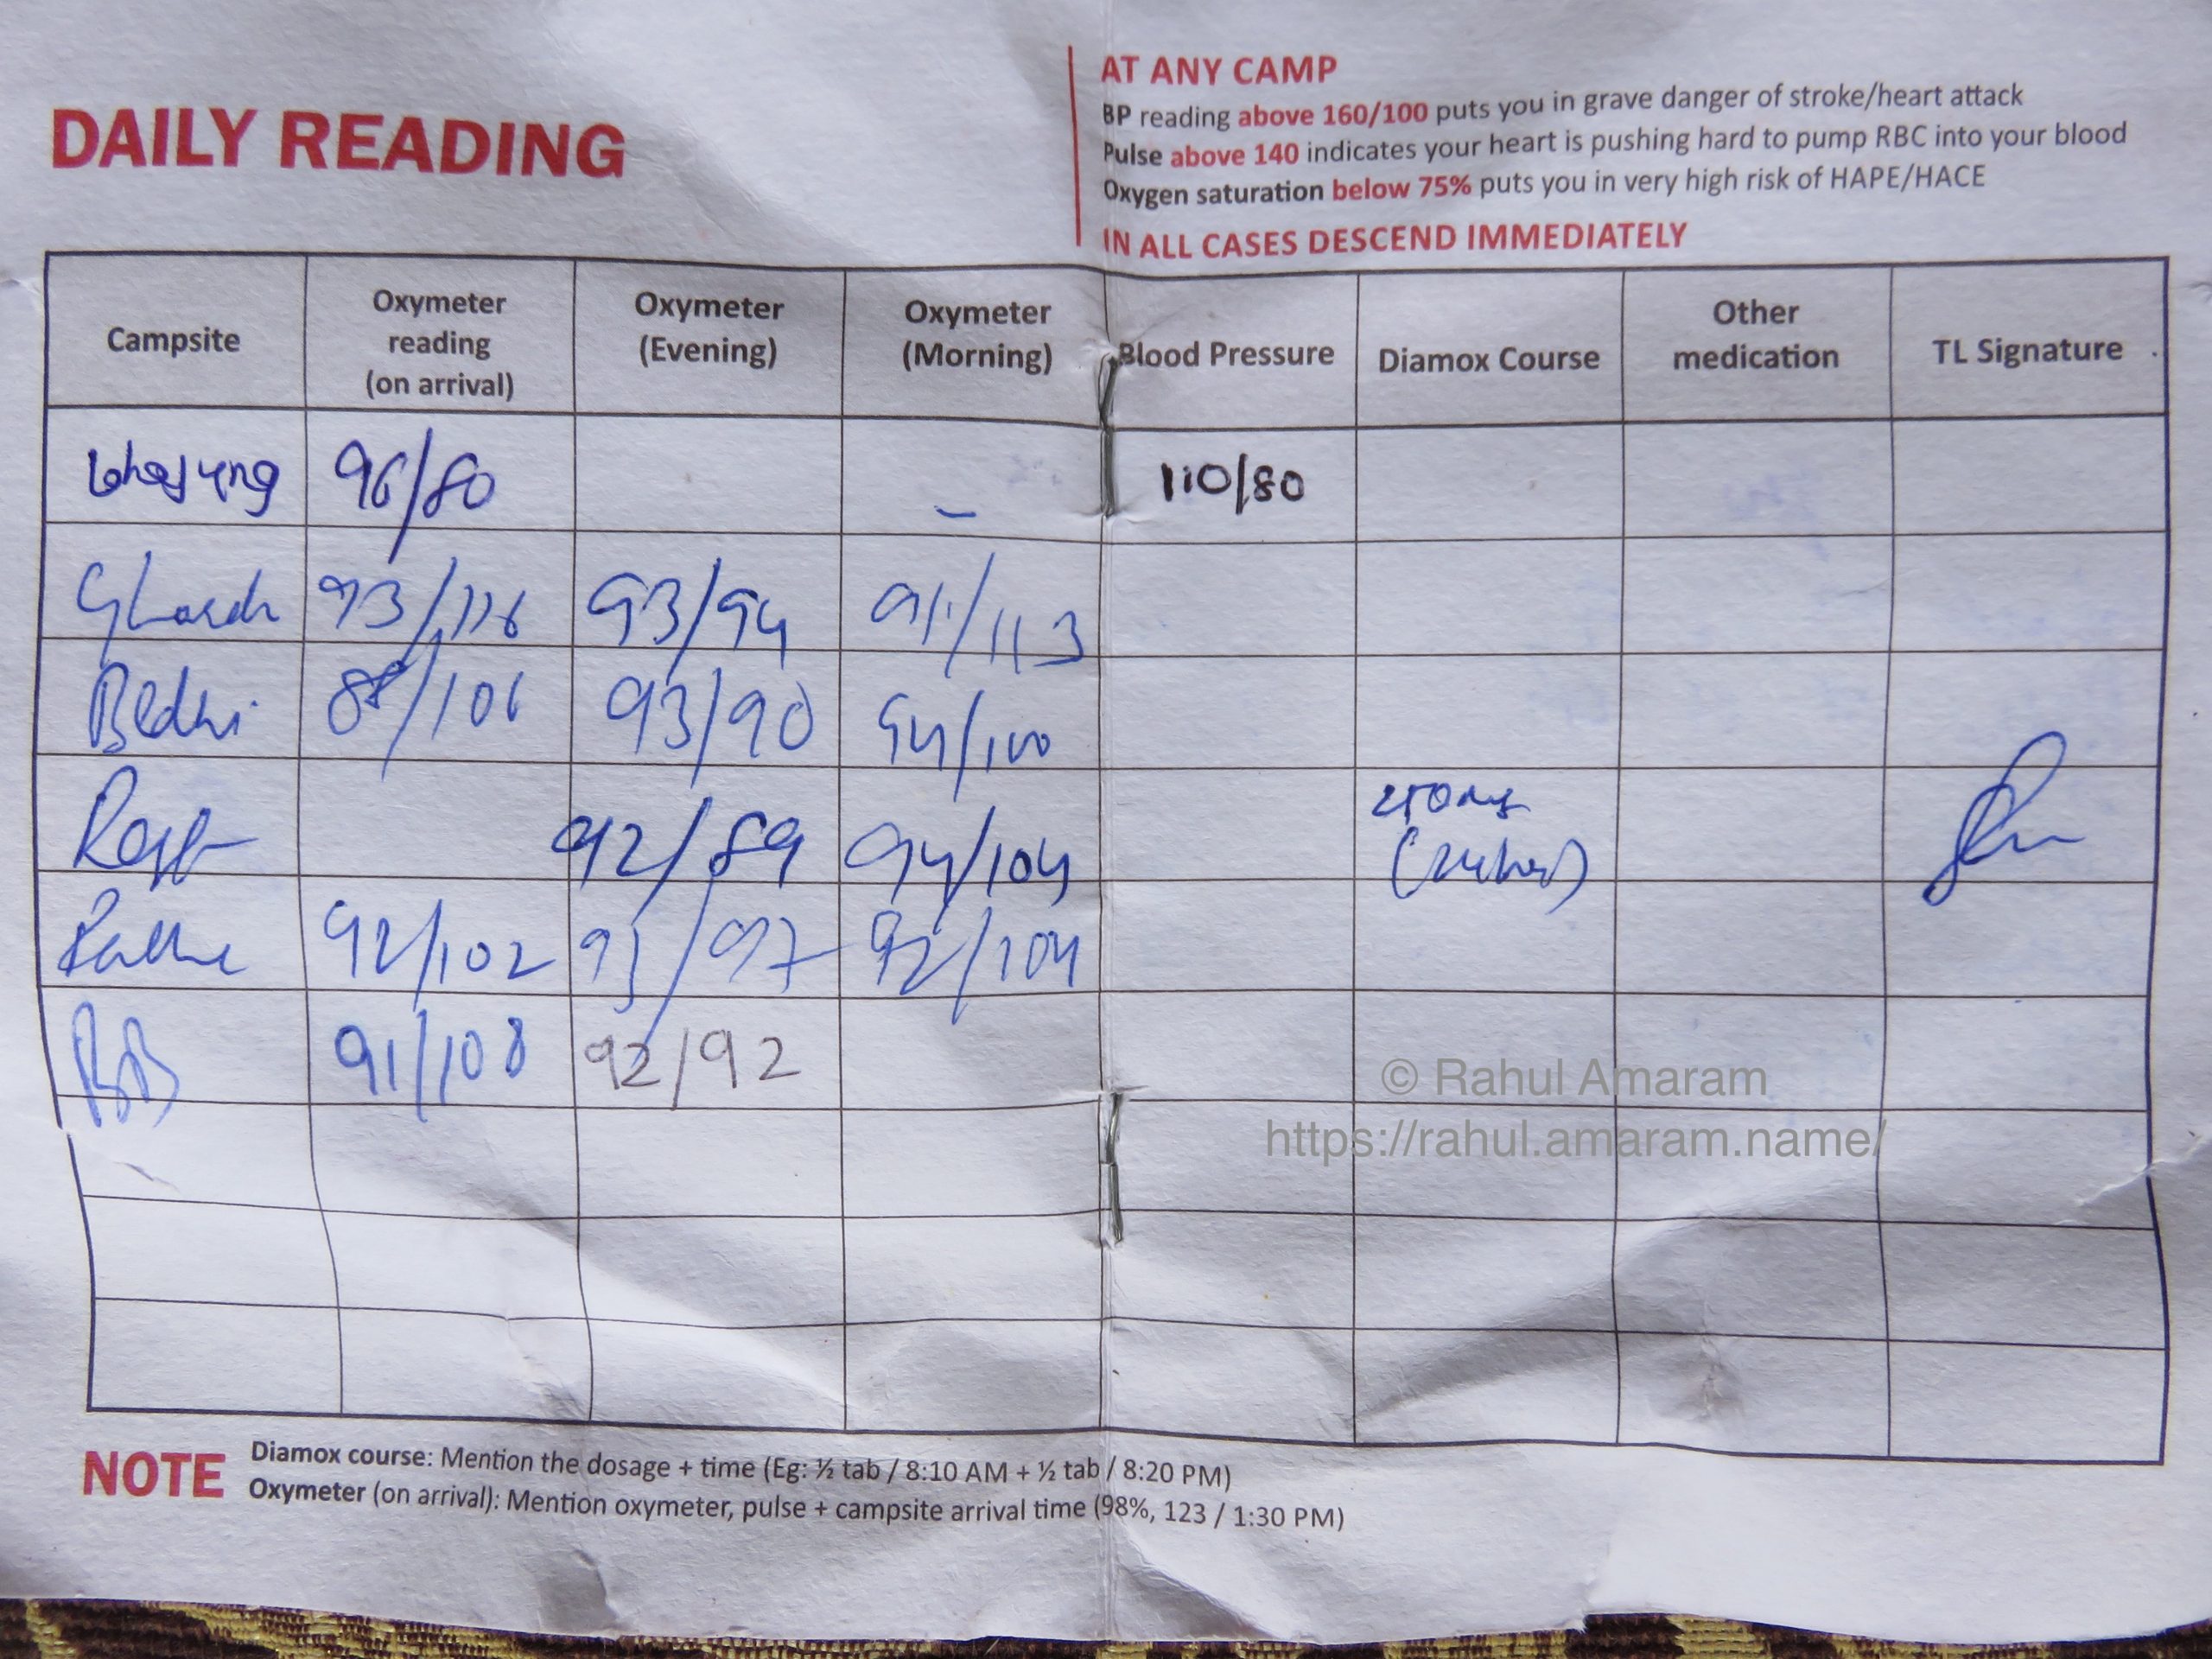 DAILY READING
AT ANY CAMP
BP reading above 160/100 puts you in grave danger of stroke/heart attack
Pulse above 140 indicates your heart is pushing hard to pump RBC into your blood
Oxygen saturation below 75% puts you in very high risk of HAPE/HACE
IN ALL CASES DESCEND IMMEDIATELY
Campsite
Oxymeter
reading
(on arrival)
Oxymeter
(Evening)
Oxymeter
(Morning)
Blood Pressure
Diamox Course
Other
medication
TL Signature
96/80 – 110/80
93/116 93/94 91/113
88/106 93/90 94/100
92/89 94/104
92/102 93/97 92/104
91/108 92/92
© Rahul Amaram
https://rahul.amaram.name/
NOTE
Diamox course: Mention the dosage + time (Eg: ½ tab / 8:10 AM + ½ tab / 8:20 PM)
Oxymeter (on arrival): Mention oxymeter, pulse + campsite arrival time (98%, 123 / 1:30 PM)